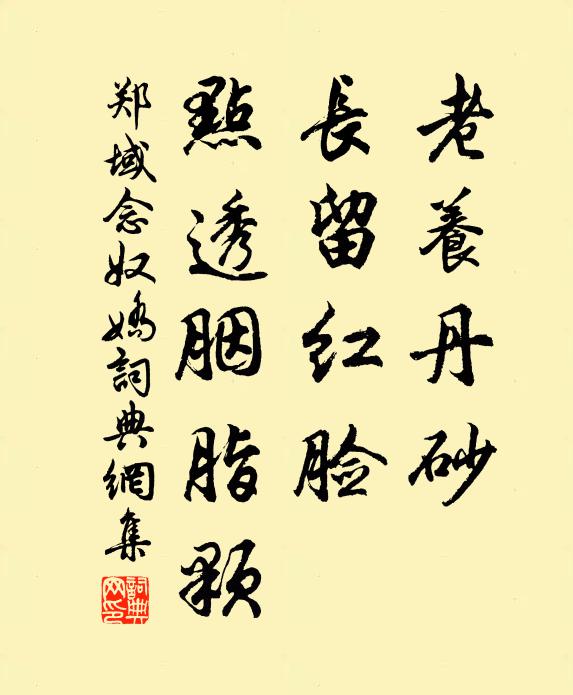 老養丹砂
長留红脸
點透胭脂顆
郑域念奴嬌詞典網集
詞典網印